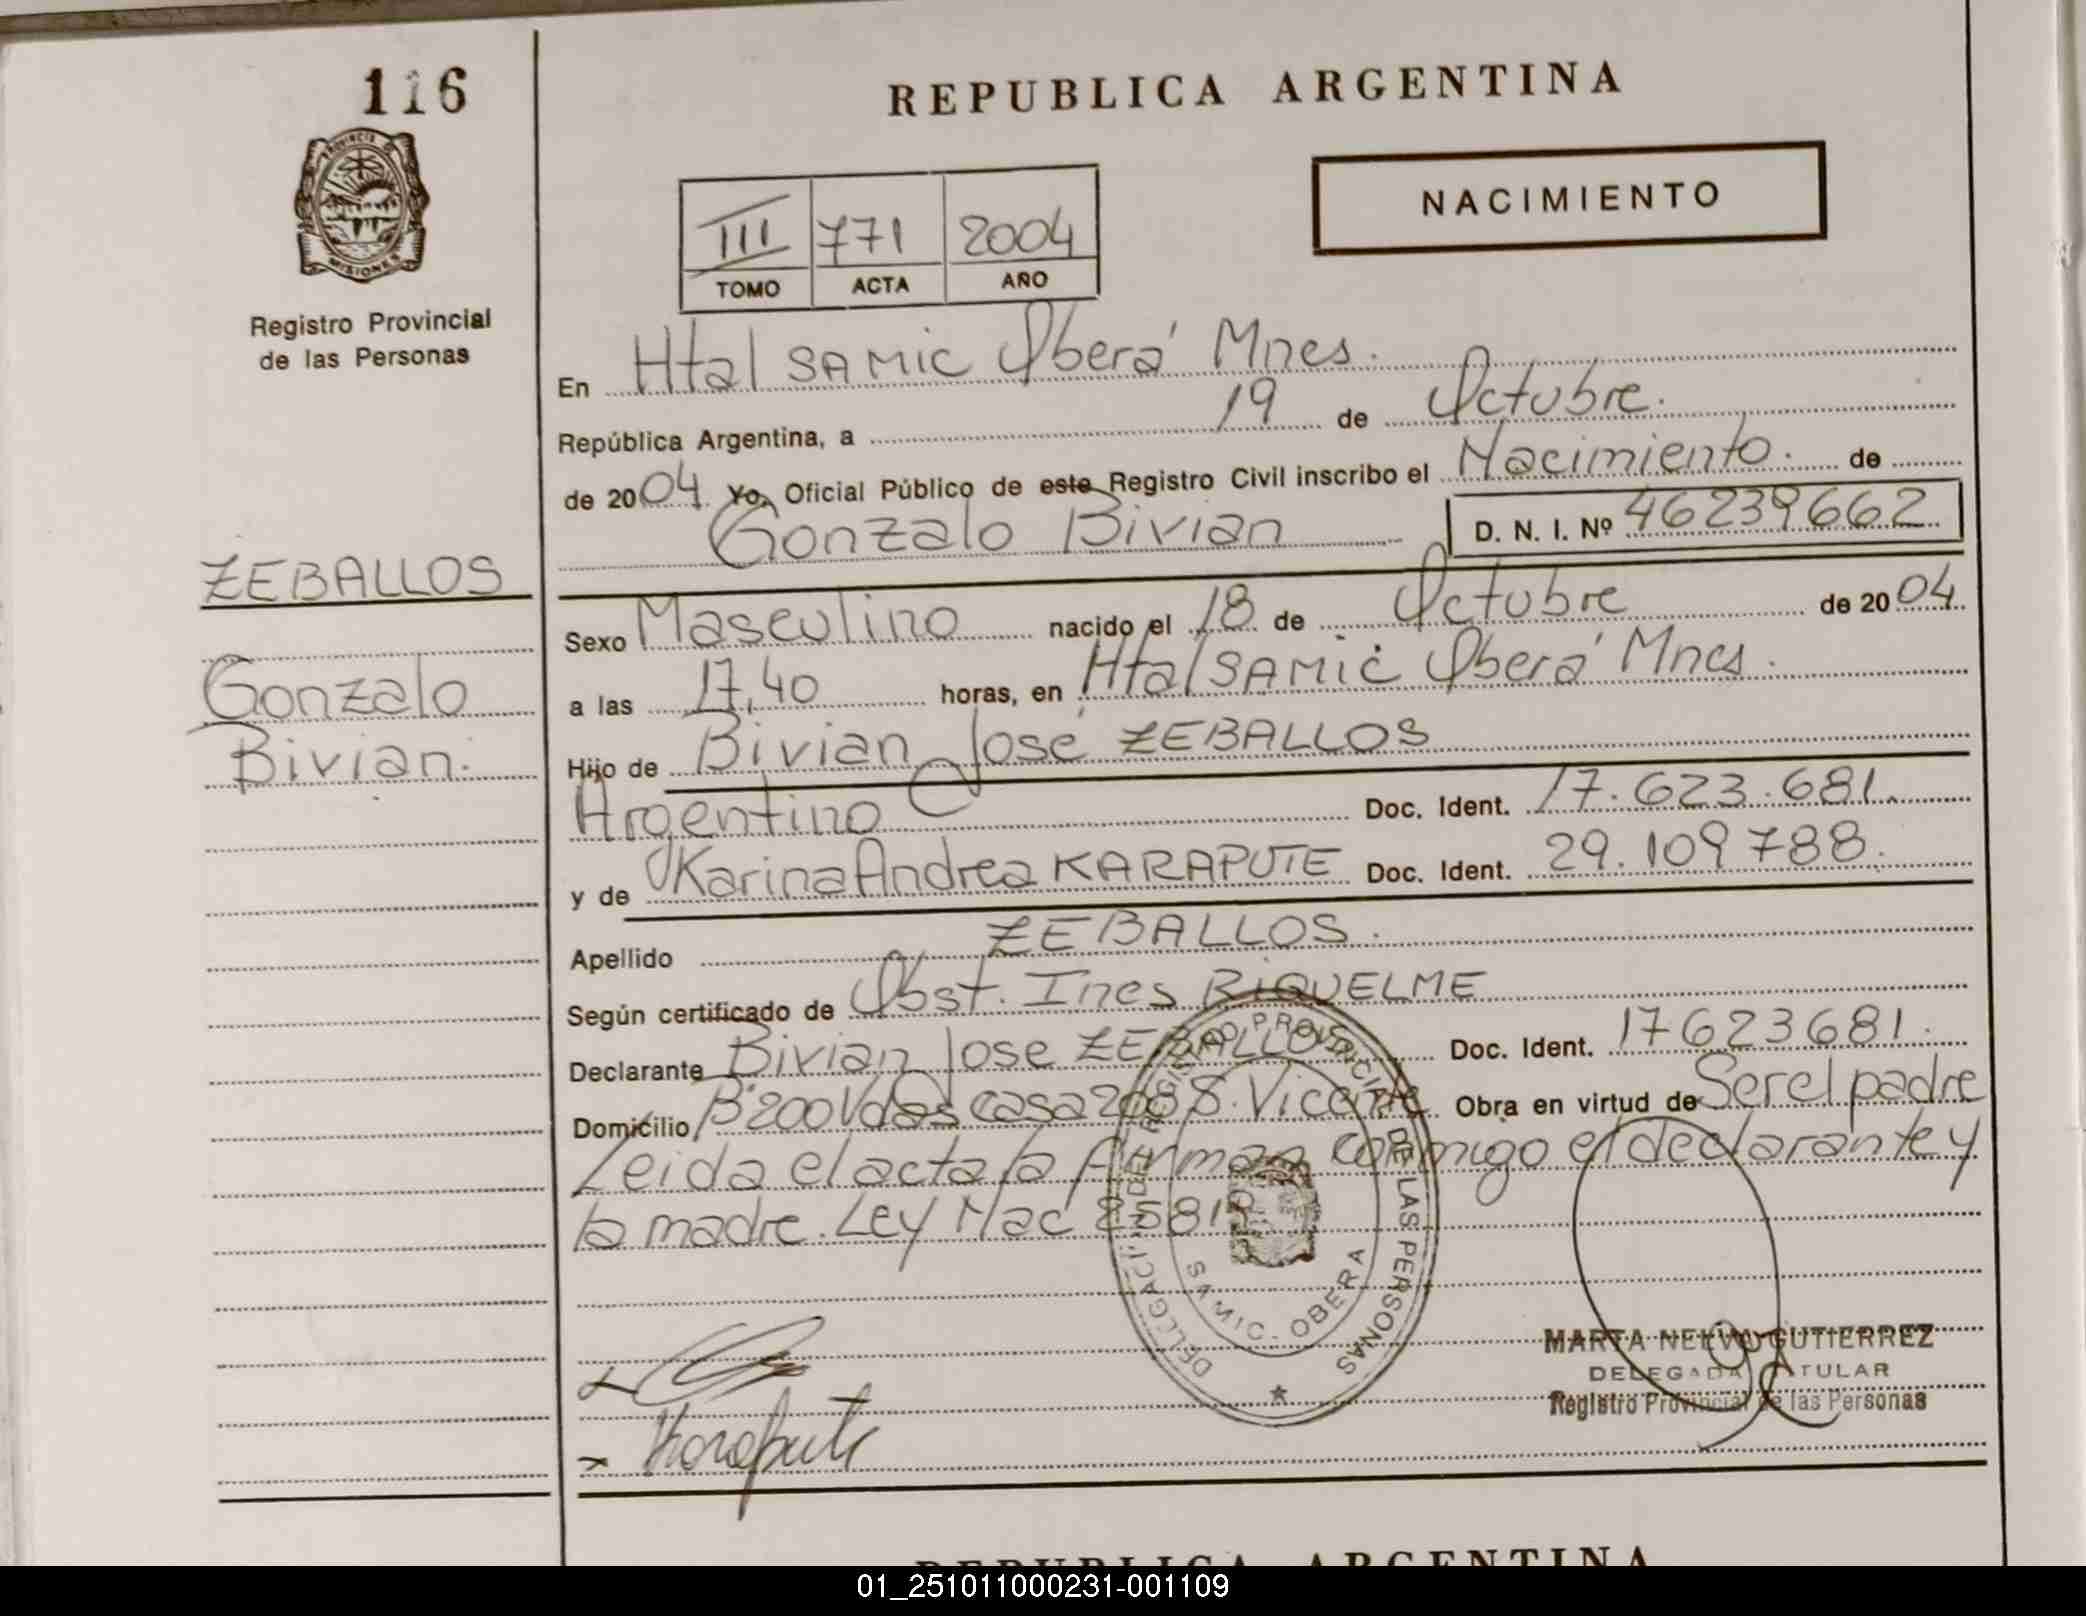 116
PROVINCIA DE
MISIONES
Registro Provincial
de las Personas
ZEBALLOS
Gonzalo
Bivian.
REPUBLICA ARGENTINA
NACIMIENTO
III 771 2004
TOMO ACTA AÑO
En Htal SAMIC Oberá Mnes.
República Argentina, a 19 de Octubre.
de 2004. Yo, Oficial Público de este Registro Civil inscribo el Nacimiento. de
Gonzalo Bivian D. N. I. Nº 46239662
Sexo Masculino nacido el 18 de Octubre de 2004
a las 17,40 horas, en Htal SAMIC Oberá Mnes.
Hijo de Bivian José ZEBALLOS
Argentino Doc. Ident. 17.623.681.
y de Karina Andrea KARAPUTE Doc. Ident. 29.109788.
Apellido ZEBALLOS.
Según certificado de Obst. Ines RIQUELME
Declarante Bivian Jose ZEBALLOS Doc. Ident. 17623681.
Domicilio B° 200 Vdas casa 208 S. Vicente Obra en virtud de Ser el padre
Leida el acta la firman conmigo el declarante y
la madre. Ley Nac 25819
DELEGACION DEL REGISTRO PROVINCIAL DE LAS PERSONAS
SAMIC. OBERA
Karapute
MARTA NELVA GUTIERREZ
DELEGADA TITULAR
Registro Provincial de las Personas
REPUBLICA ARGENTINA
01_251011000231-001109